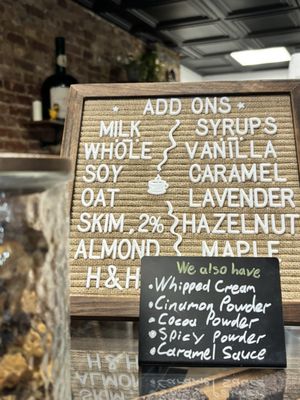 ADD ONS
MILK SYRUPS
WHOLE VANILLA
SOY CARAMEL
OAT LAVENDER
SKIM, 2% HAZELNUT
ALMOND MAPLE
H&H
We also have
• Whipped Cream
• Cinumon Powder
• Cocoa Powder
• Spicy Powder
• Caramel Sauce